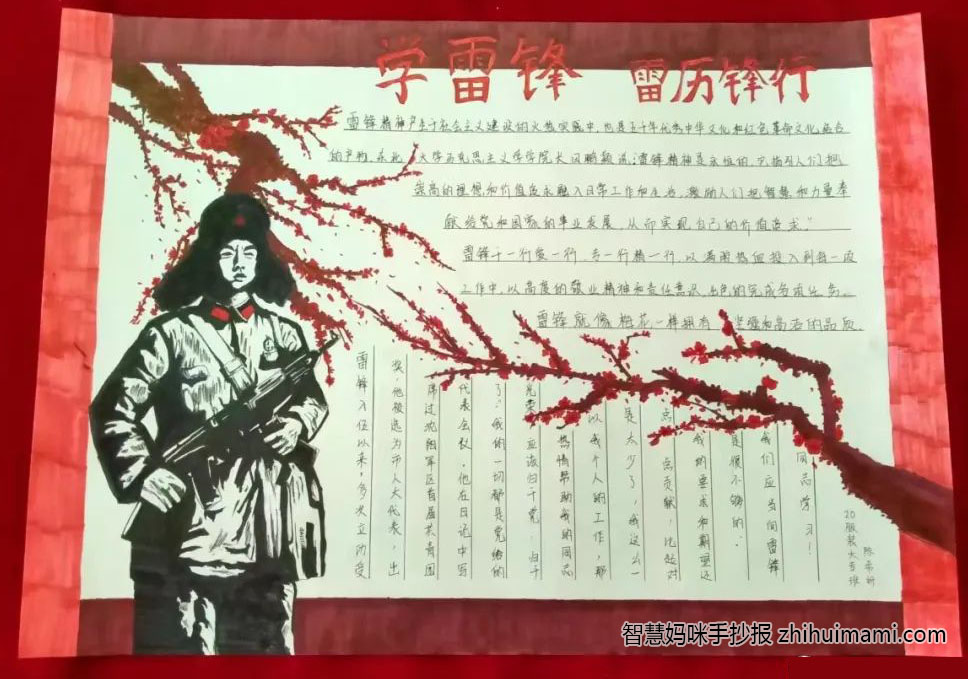 学雷锋 雷历锋行
雷锋精神产生于社会主义建设的火热实践中,也是五千年优秀中华文化和红色革命文化融合
的产物。东北大学马克思主义学院院长闫鹏颖说:雷锋精神是永恒的,它指引人们把
崇高的理想和价值追求融入日常工作和生活,激励人们把智慧和力量奉
献给党和国家的事业发展,从而实现自己的价值追求。”
雷锋干一行爱一行,专一行精一行,以满腔热血投入到每一项
工作中,以高度的敬业精神和责任意识,出色的完成各项任务。
雷锋就像梅花一样拥有 坚强和高洁的品质。
雷锋入伍以来,多次立功受
奖,他被选为市人大代表,出
席过沈阳军区首届共青团
代表会议。他在日记中写
了:我的一切都是党给的
光荣应该归于党,归于
热情帮助我的同志
以我个人的工作,那
是太少了,我这么一
点 点贡献,比起对
我的要求和期望还
是很不够的。
我们应当向雷锋
同志学习!
20服装大专班
陈希
智慧妈咪手抄报 zhihuimami.com